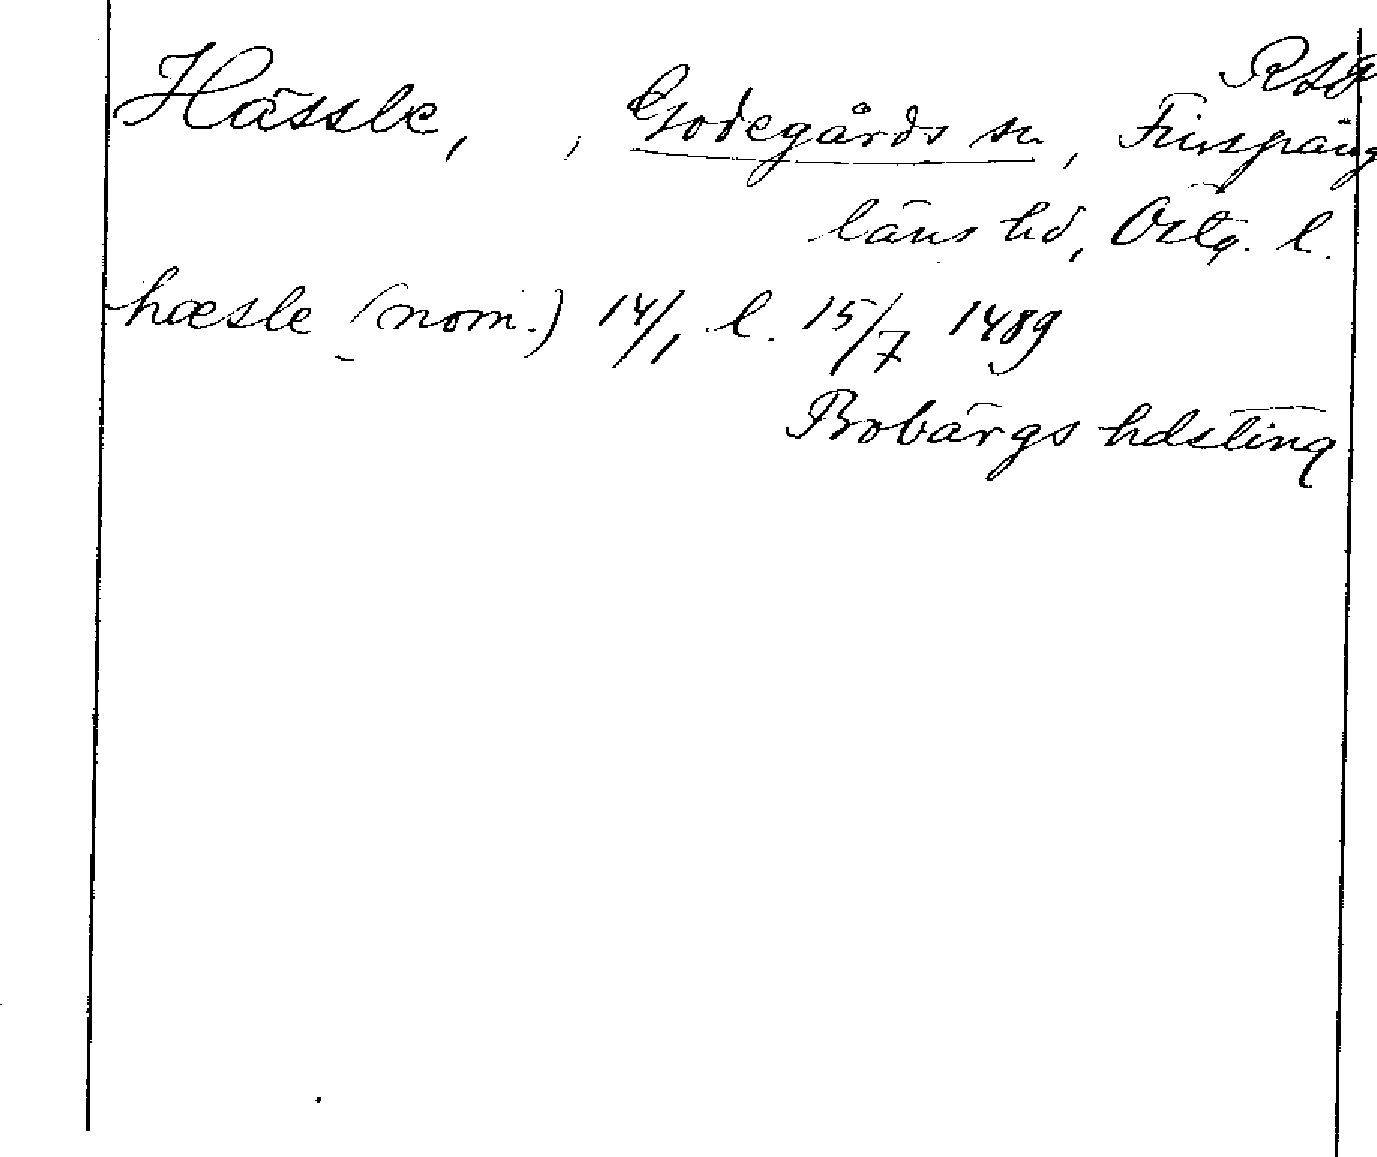 Hässle, , Godegårds sn, Finspång
läns hd, Östg. l.
hæsle (nom.) 14/1 l. 15/7 1489
Bobärgs hdsting